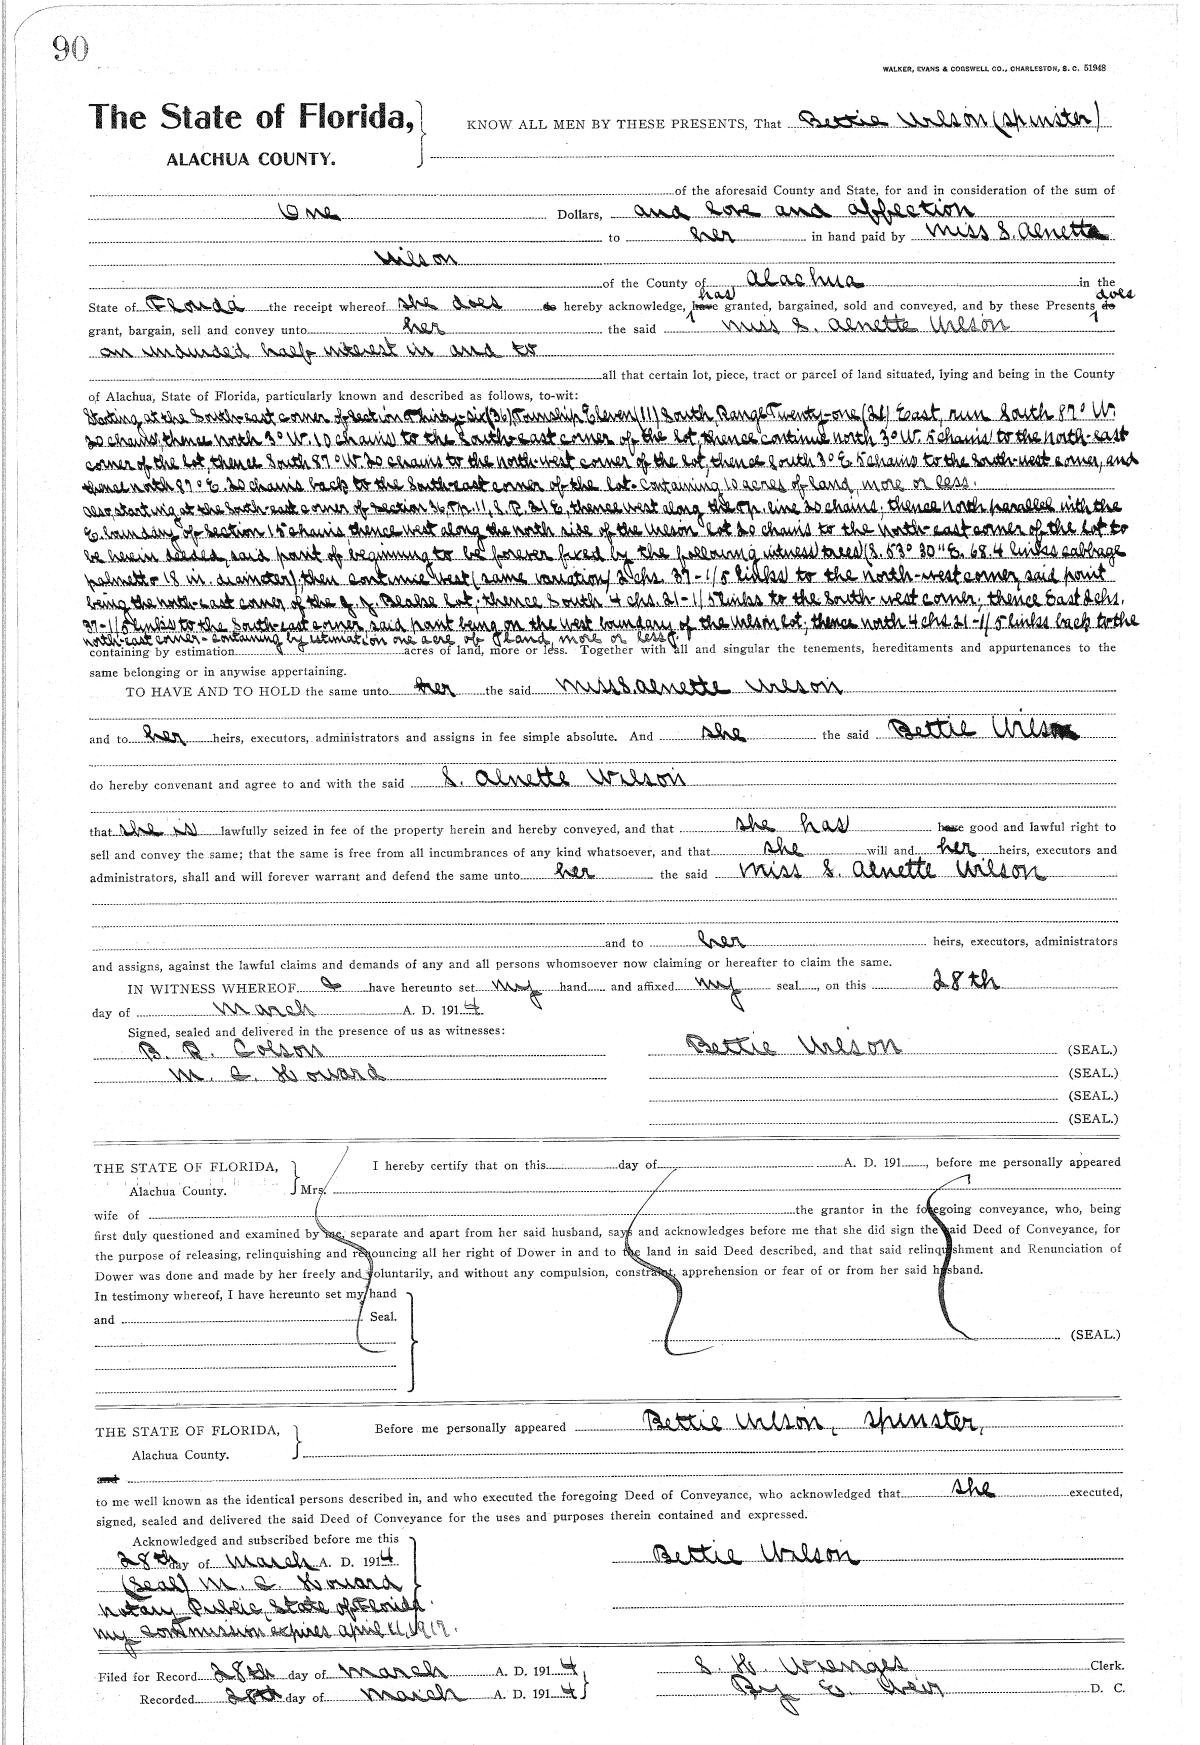 90
WALKER, EVANS & COGSWELL CO., CHARLESTON, S. C. 51948
The State of Florida,
ALACHUA COUNTY.
KNOW ALL MEN BY THESE PRESENTS, That Bettie Wilson (spinster)
of the aforesaid County and State, for and in consideration of the sum of
One Dollars, and love and affection
to her in hand paid by Miss S. Alnette
Wilson
of the County of Alachua in the
State of Florida the receipt whereof she does do hereby acknowledge, has have granted, bargained, sold and conveyed, and by these Presents does do
grant, bargain, sell and convey unto her the said Miss S. Alnette Wilson
an undivided half interest in and to
all that certain lot, piece, tract or parcel of land situated, lying and being in the County
of Alachua, State of Florida, particularly known and described as follows, to-wit:
Starting at the South-east corner of Section Thirty-six (36) Township Eleven (11) South, Range Twenty-one (21) East, run South 87° W.
20 chains, thence north 3° W. 10 chains to the South-east corner of the lot, thence continue north 3° W. 5 chains to the north-east
corner of the lot, thence South 87° W. 20 chains to the north-west corner of the lot, thence South 3° E 5 chains to the South-west corner, and
thence north 87° E. 20 chains back to the South-east corner of the lot - containing 10 acres of land, more or less.
Also, starting at the South-east corner of Section 36, Tp. 11, S. R. 21 E, thence west along the Tp. line 20 chains, thence north parallel with the
E. boundary of Section 15 chains thence west along the north side of the Wilson lot 20 chains to the north-east corner of the lot to
be herein deeded, said point of beginning to be forever fixed by the following witness trees (S. 53° 30" E. 68.4 links cabbage
palmetto 18 in. diameter), then continue west (same variation) 2 chs. 37-1/5 links to the north-west corner, said point
being the north-east corner of the J. J. Blake lot; thence South 4 chs. 21-1/5 links to the South-west corner; thence East 2 chs.
37-1/5 links to the South-east corner, said point being on the west boundary of the Wilson lot; thence north 4 chs 21-1/5 links back to the
north-east corner - containing by estimation one acre of land, more or less.
containing by estimation acres of land, more or less. Together with all and singular the tenements, hereditaments and appurtenances to the
same belonging or in anywise appertaining.
TO HAVE AND TO HOLD the same unto her the said Miss S. Alnette Wilson
and to her heirs, executors, administrators and assigns in fee simple absolute. And she the said Bettie Wilson
do hereby convenant and agree to and with the said S. Alnette Wilson
that she is lawfully seized in fee of the property herein and hereby conveyed, and that she has have good and lawful right to
sell and convey the same; that the same is free from all incumbrances of any kind whatsoever, and that she will and her heirs, executors and
administrators, shall and will forever warrant and defend the same unto her the said Miss S. Alnette Wilson
and to her heirs, executors, administrators
and assigns, against the lawful claims and demands of any and all persons whomsoever now claiming or hereafter to claim the same.
IN WITNESS WHEREOF I have hereunto set my hand and affixed my seal, on this 28th
day of March A. D. 1914.
Signed, sealed and delivered in the presence of us as witnesses:
B. R. Colson Bettie Wilson (SEAL.)
M. C. Howard (SEAL.)
(SEAL.)
(SEAL.)
THE STATE OF FLORIDA,
Alachua County.
I hereby certify that on this day of A. D. 191, before me personally appeared
Mrs.
wife of the grantor in the foregoing conveyance, who, being
first duly questioned and examined by me, separate and apart from her said husband, says and acknowledges before me that she did sign the said Deed of Conveyance, for
the purpose of releasing, relinquishing and renouncing all her right of Dower in and to the land in said Deed described, and that said relinquishment and Renunciation of
Dower was done and made by her freely and voluntarily, and without any compulsion, constraint, apprehension or fear of or from her said husband.
In testimony whereof, I have hereunto set my hand
and Seal.
(SEAL.)
THE STATE OF FLORIDA,
Alachua County.
Before me personally appeared Bettie Wilson, spinster,
and
to me well known as the identical persons described in, and who executed the foregoing Deed of Conveyance, who acknowledged that she executed,
signed, sealed and delivered the said Deed of Conveyance for the uses and purposes therein contained and expressed.
Acknowledged and subscribed before me this
28th day of March A. D. 1914 Bettie Wilson
(Seal) M. C. Howard
Notary Public, State of Florida.
My Commission expires April 11, 1917.
Filed for Record 28th day of March A. D. 1914 S. H. Wienges Clerk.
Recorded 28th day of March A. D. 1914 By E. D. C.